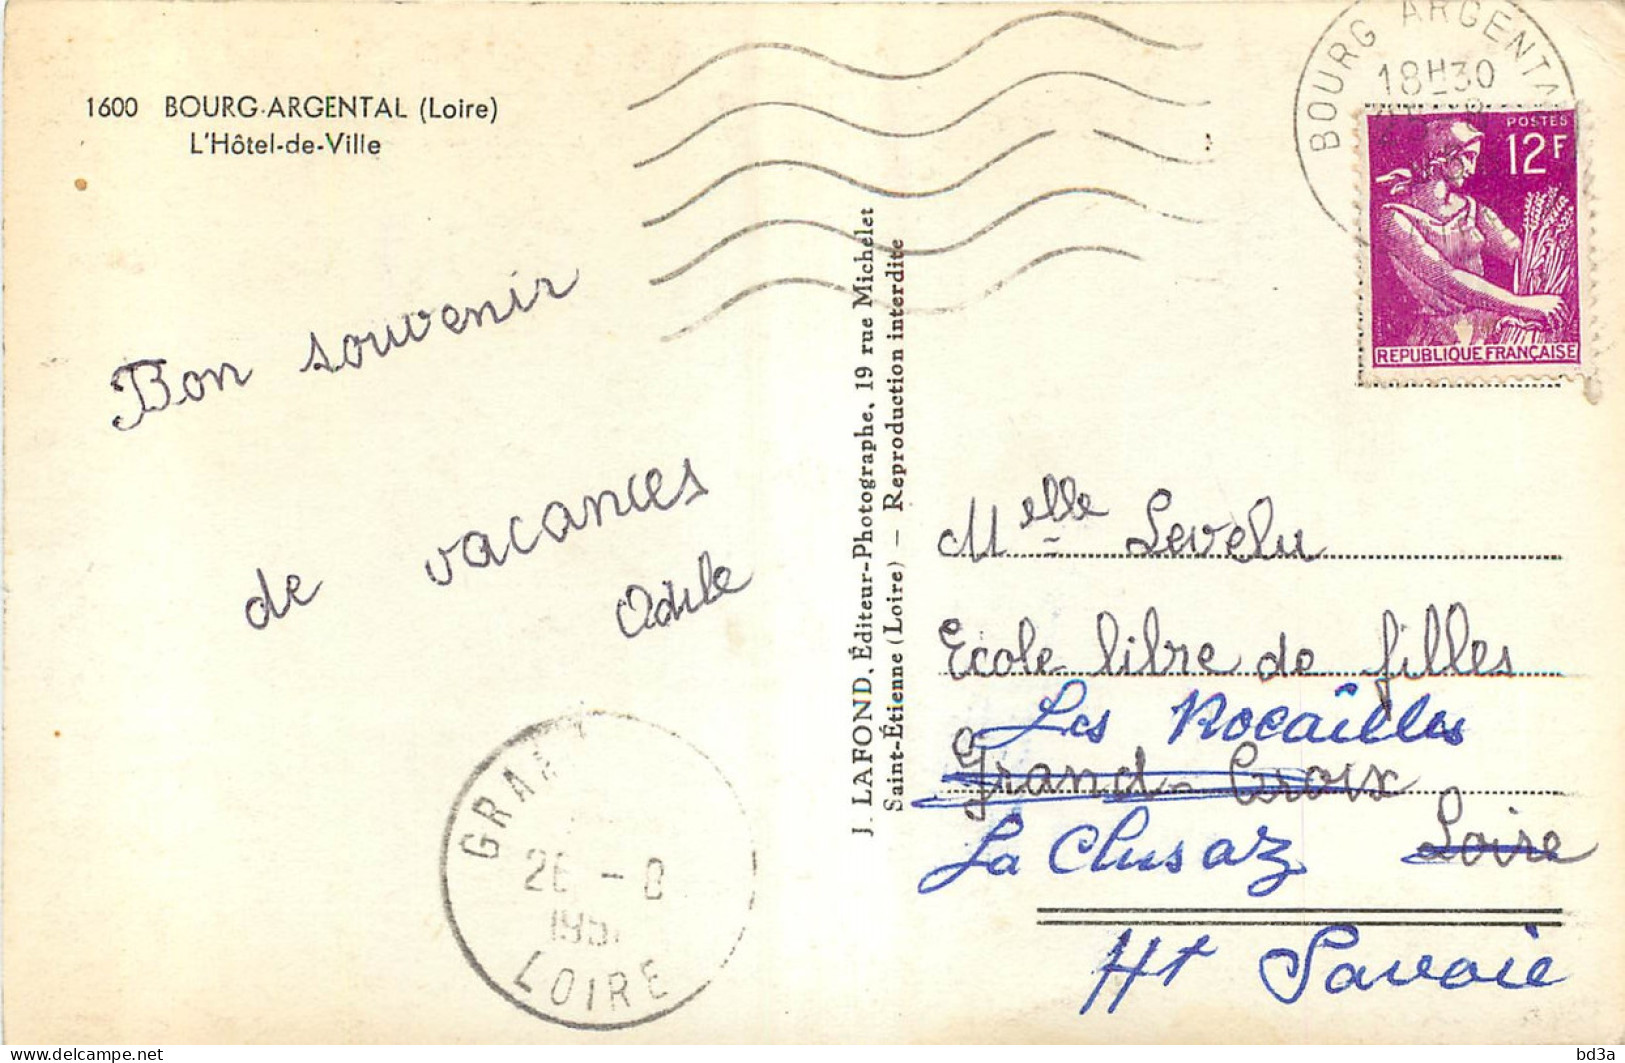 1600 BOURG-ARGENTAL (Loire)
L'Hôtel-de-Ville
BOURG ARGENTAL
18H30
POSTES
12F
REPUBLIQUE FRANÇAISE
Bon souvenir
de vacances
Odile
J. LAFOND, Éditeur-Photographe, 19 rue Michelet
Saint-Étienne (Loire) — Reproduction interdite
Melle Levelu
Ecole libre de filles
Les Rocaîlles
Grand-Croix
La Clusaz Loire
Ht Savoie
LOIRE
bd3a